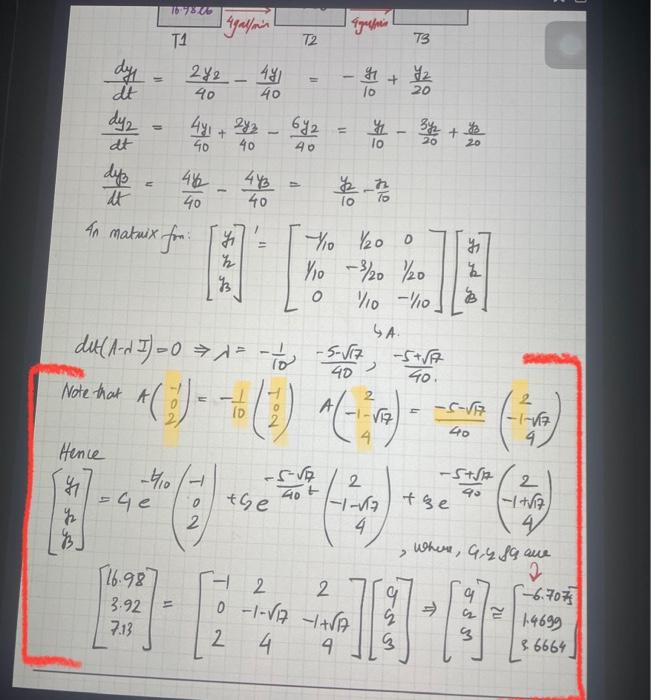 16.9806
4gal/min 4gal/min
T1 T2 T3
dy₁/dt = 2y₂/40 − 4y₁/40 = −y₁/10 + y₂/20
dy₂/dt = 4y₁/40 + 2y₃/40 − 6y₂/40 = y₁/10 − 3y₂/20 + y₃/20
dy₃/dt = 4y₂/40 − 4y₃/40 = y₂/10 − y₃/10
In matrix form: [y₁ y₂ y₃]' = [−1/10 1/20 0; 1/10 −3/20 1/20; 0 1/10 −1/10] [y₁ y₂ y₃]
↳A.
det(A−λI)=0 ⇒ λ = −1/10, (−5−√17)/40, (−5+√17)/40.
Note that A(−1 0 2) = −1/10 (−1 0 2) A(2 −1−√17 4) = (−5−√17)/40 (2 −1−√17 4)
Hence
[y₁ y₂ y₃] = c₁e^(−t/10) (−1 0 2) + c₂e^((−5−√17)/40 t) (2 −1−√17 4) + c₃e^((−5+√17)/40) (2 −1+√17 4)
, where, c₁, c₂ & c₃ are
[16.98 3.92 7.13] = [−1 2 2; 0 −1−√17 −1+√17; 2 4 4] [c₁ c₂ c₃] ⇒ [c₁ c₂ c₃] ≅ [−6.7075 1.4699 3.6664]